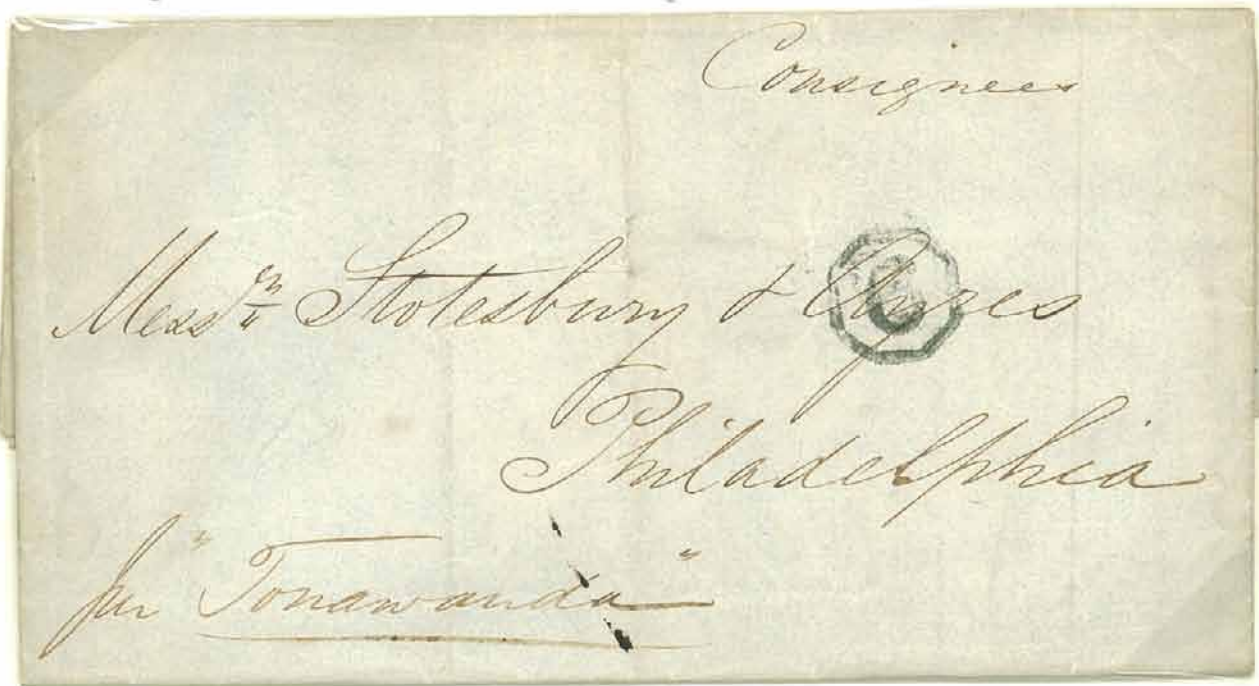 Consignees
Messrs Stotesbury & Ayres
Philadelphia
per "Tonawanda"